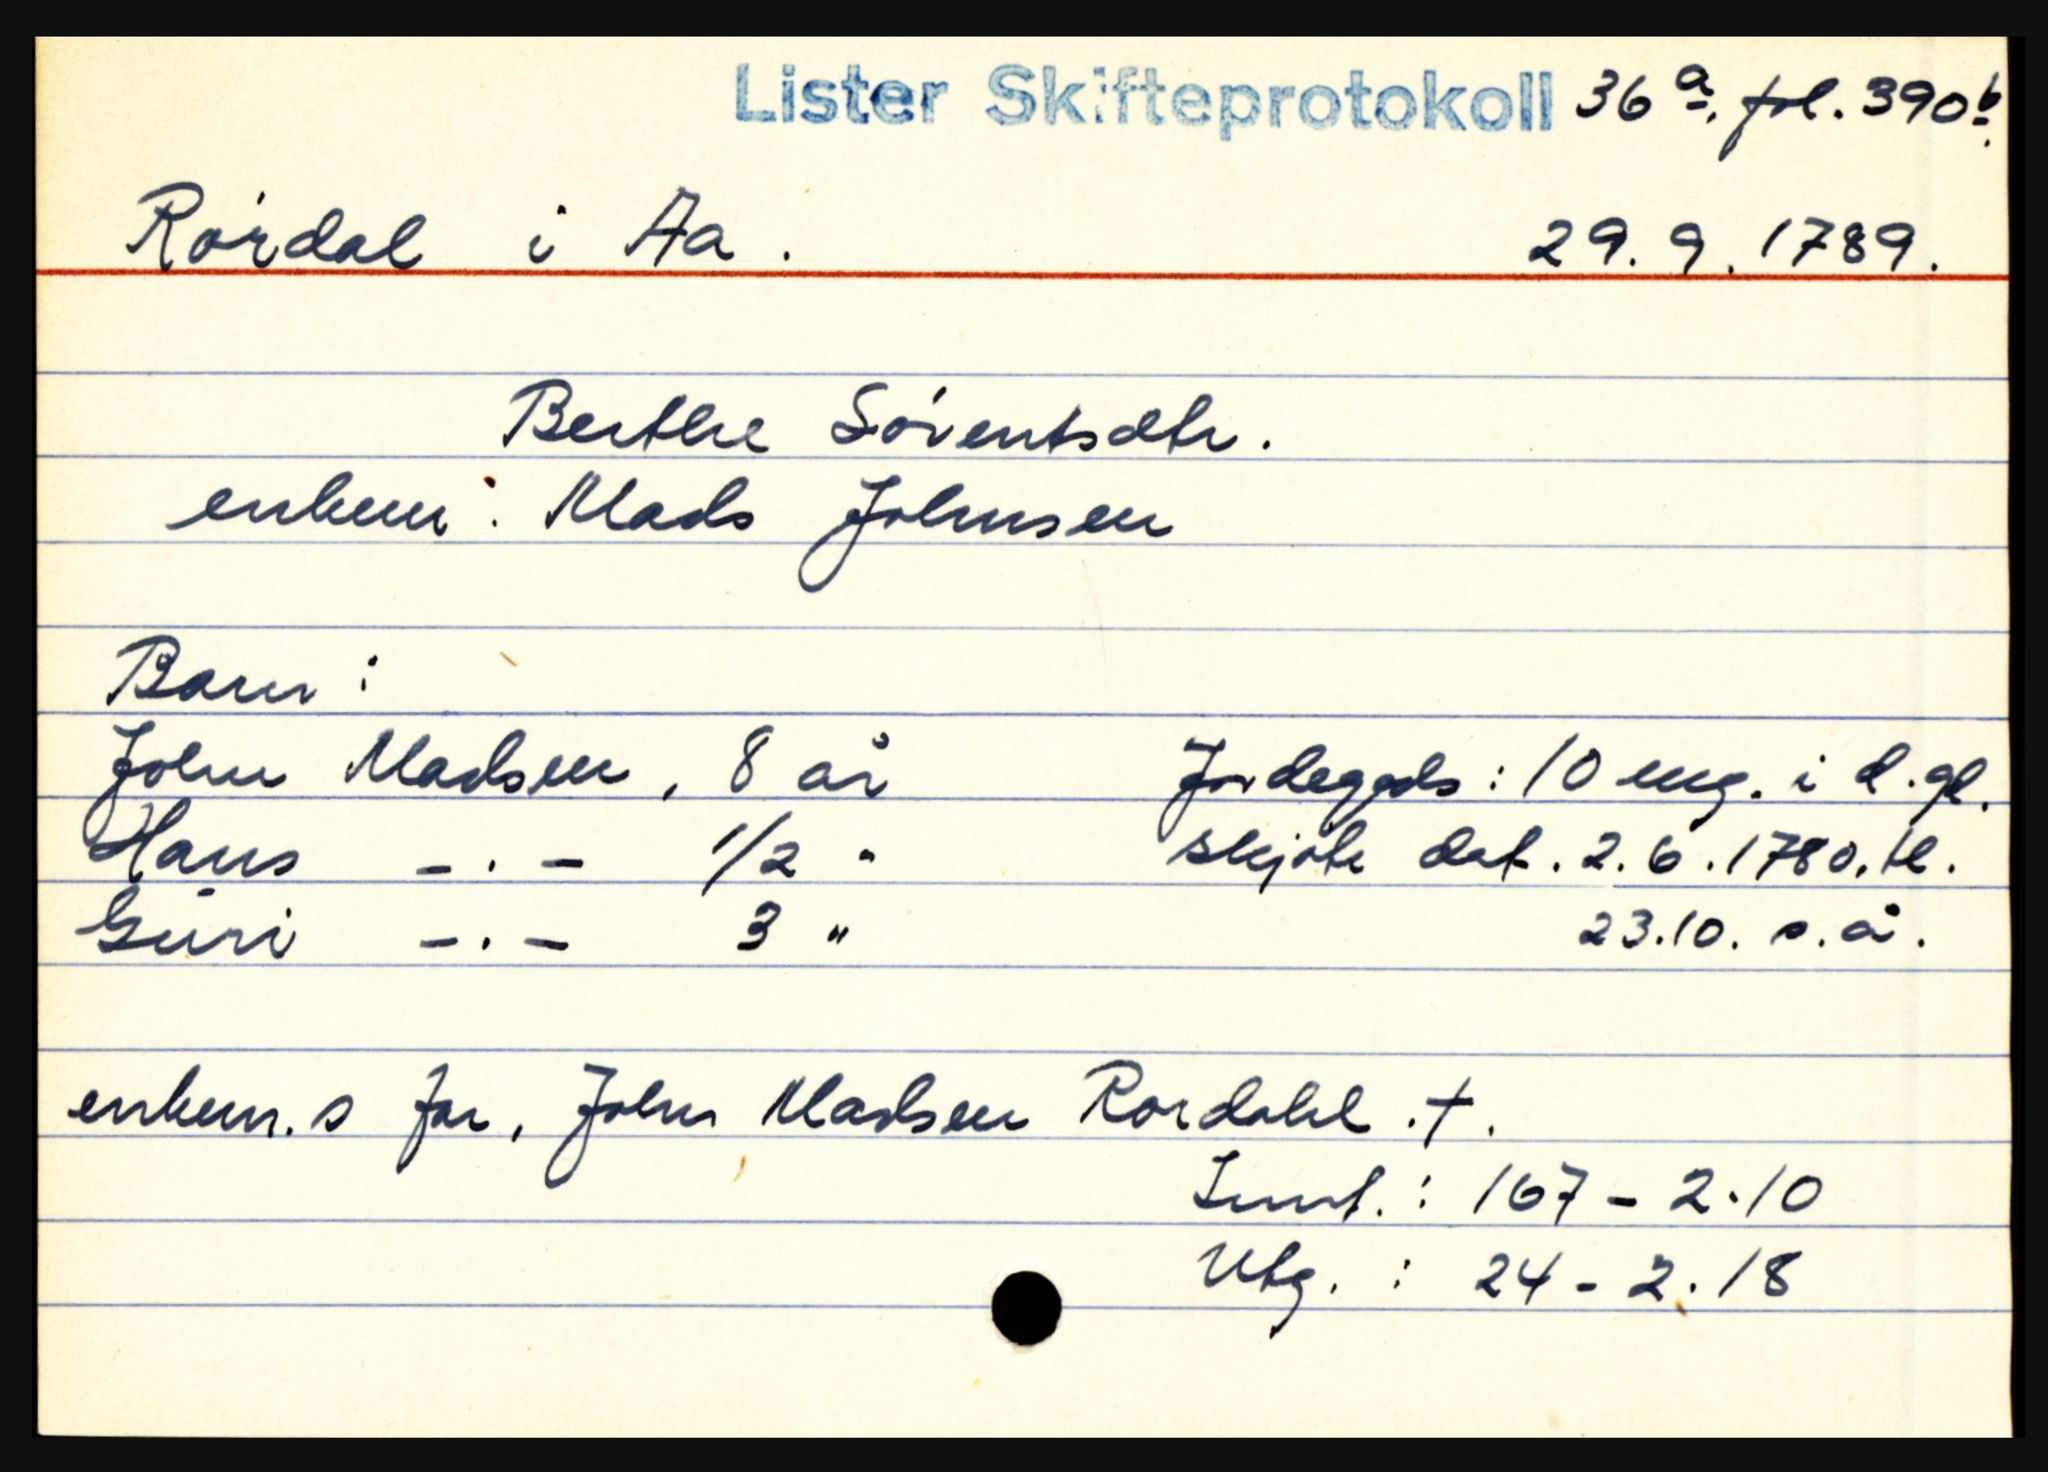 Lister Skifteprotokoll 36 a, fol. 390 b.
Rørdal i Aa. 29.9.1789.
Berthe Sørentsdtr.
enkem: Mads Johnsen
Barn:
John Madsen, 8 år Jordegods: 10 eng. i d. gl.
Hans -·- 1/2 " skjøte dat. 2.6.1780, tl.
Guri -·- 3 " 23.10. s.å.
enkem.s far, John Madsen Rordahl. †.
Innt.: 167 - 2·10
Utg. : 24 - 2·18